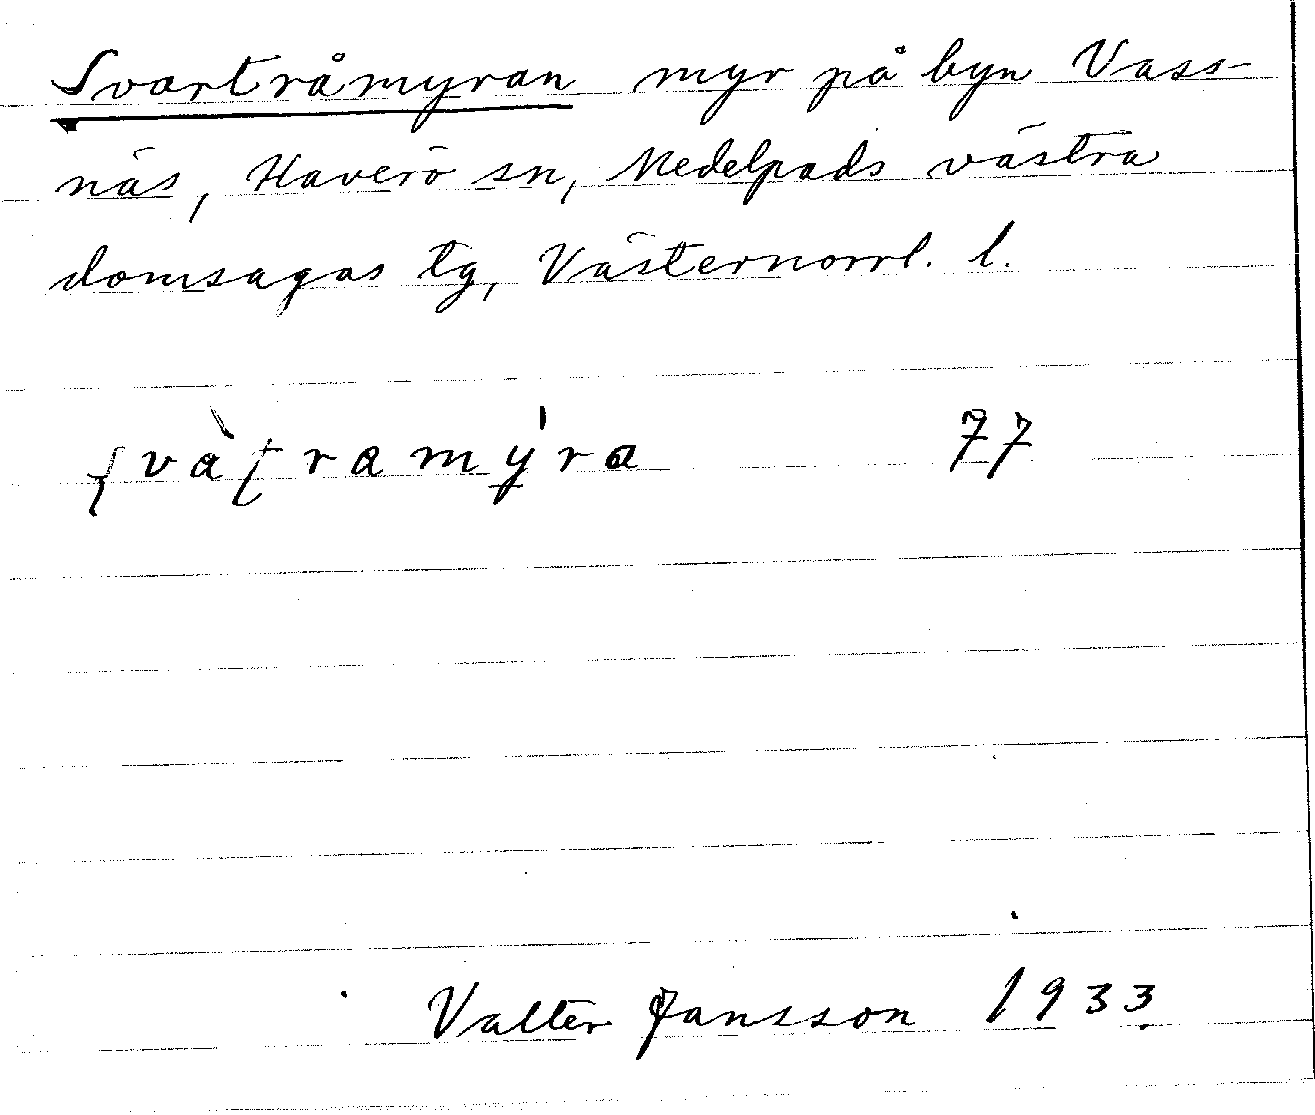 Svartråmyran myr på byn Vass-
näs, Haverö sn, Medelpads västra
domsagas tg, Västernorrl. l.
77
Valter Jansson 1933